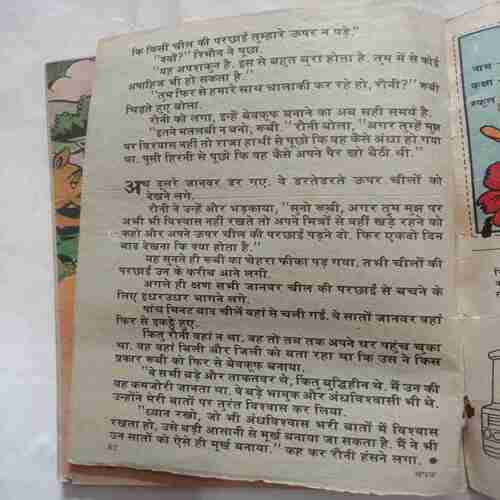 कि किसी चील की परछाईं तुम्हारे ऊपर न पड़े."
"क्यों?" रिमीव ने पूछा.
"यह अपशकुन है. इस से बहुत बुरा होता है. तुम में से कोई
अपाहिज भी हो सकता है."
"तुम फिर से हमारे साथ चालाकी कर रहे हो, रौनी?" रूबी
चिढ़ते हुए बोला.
रौनी को लगा, इन्हें बेवकूफ बनाने का अब सही समय है.
"इतने मतलबी न बनो, रूबी." रौनी बोला, "अगर तुम्हें मुझ
पर विश्वास नहीं तो राजा हाथी से पूछो कि वह कैसे अंधा हो गया
था. पुसी हिरनी से पूछो कि वह कैसे अपने पैर खो बैठी थी."
अब दूसरे जानवर डर गए. वे डरतेडरते ऊपर चीलों को
देखने लगे.
रौनी ने उन्हें और भड़काया, "सुनो रूबी, अगर तुम मुझ पर
अभी भी विश्वास नहीं रखते तो अपने मित्रों से यहीं खड़े रहने को
कहो और अपने ऊपर चील की परछाईं पड़ने दो. फिर एकदो दिन
बाद देखना कि क्या होता है."
यह सुनते ही रूबी का चेहरा फीका पड़ गया. तभी चीलों की
परछाईं उन के करीब आने लगी.
अगले ही क्षण सभी जानवर चील की परछाईं से बचने के
लिए इधरउधर भागने लगे.
पांच मिनट बाद चीलें वहां से चली गईं. वे सातों जानवर वहां
फिर से इकट्ठे हुए.
किंतु रौनी वहां न था. वह तो तब तक अपने घर पहुंच चुका
था. वह वहां मिली और जिली को बता रहा था कि उस ने किस
प्रकार रूबी को फिर से बेवकूफ बनाया.
"वे सभी बड़े और ताकतवर थे, किंतु बुद्धिहीन थे. मैं उन की
यह कमजोरी जानता था. वे बड़े भावुक और अंधविश्वासी भी थे.
उन्होंने मेरी बातों पर तुरंत विश्वास कर लिया.
"ध्यान रखो, जो भी अंधविश्वास भरी बातों में विश्वास
रखता हो, उसे बड़ी आसानी से मूर्ख बनाया जा सकता है. मैं ने भी
उन सातों को ऐसे ही मूर्ख बनाया." कह कर रौनी हंसने लगा. •
चंपक
नाम
कक्षा
स्कूल